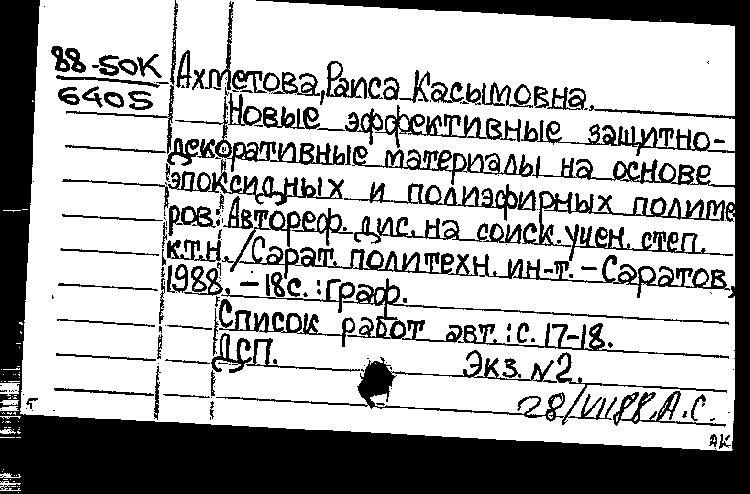 88-50К
6405
Ахметова, Раиса Касымовна.
Новые эффективные защитно-
декоративные материалы на основе
эпоксидных и полиэфирных полиме
ров: Автореф. дис. на соиск. учен. степ.
к.т.н. /Сарат. политехн. ин-т. - Саратов,
1988. - 18с. : граф.
Список работ авт.: с. 17-18.
ДСП. Экз. №2.
28/VII88. А.С.
АК